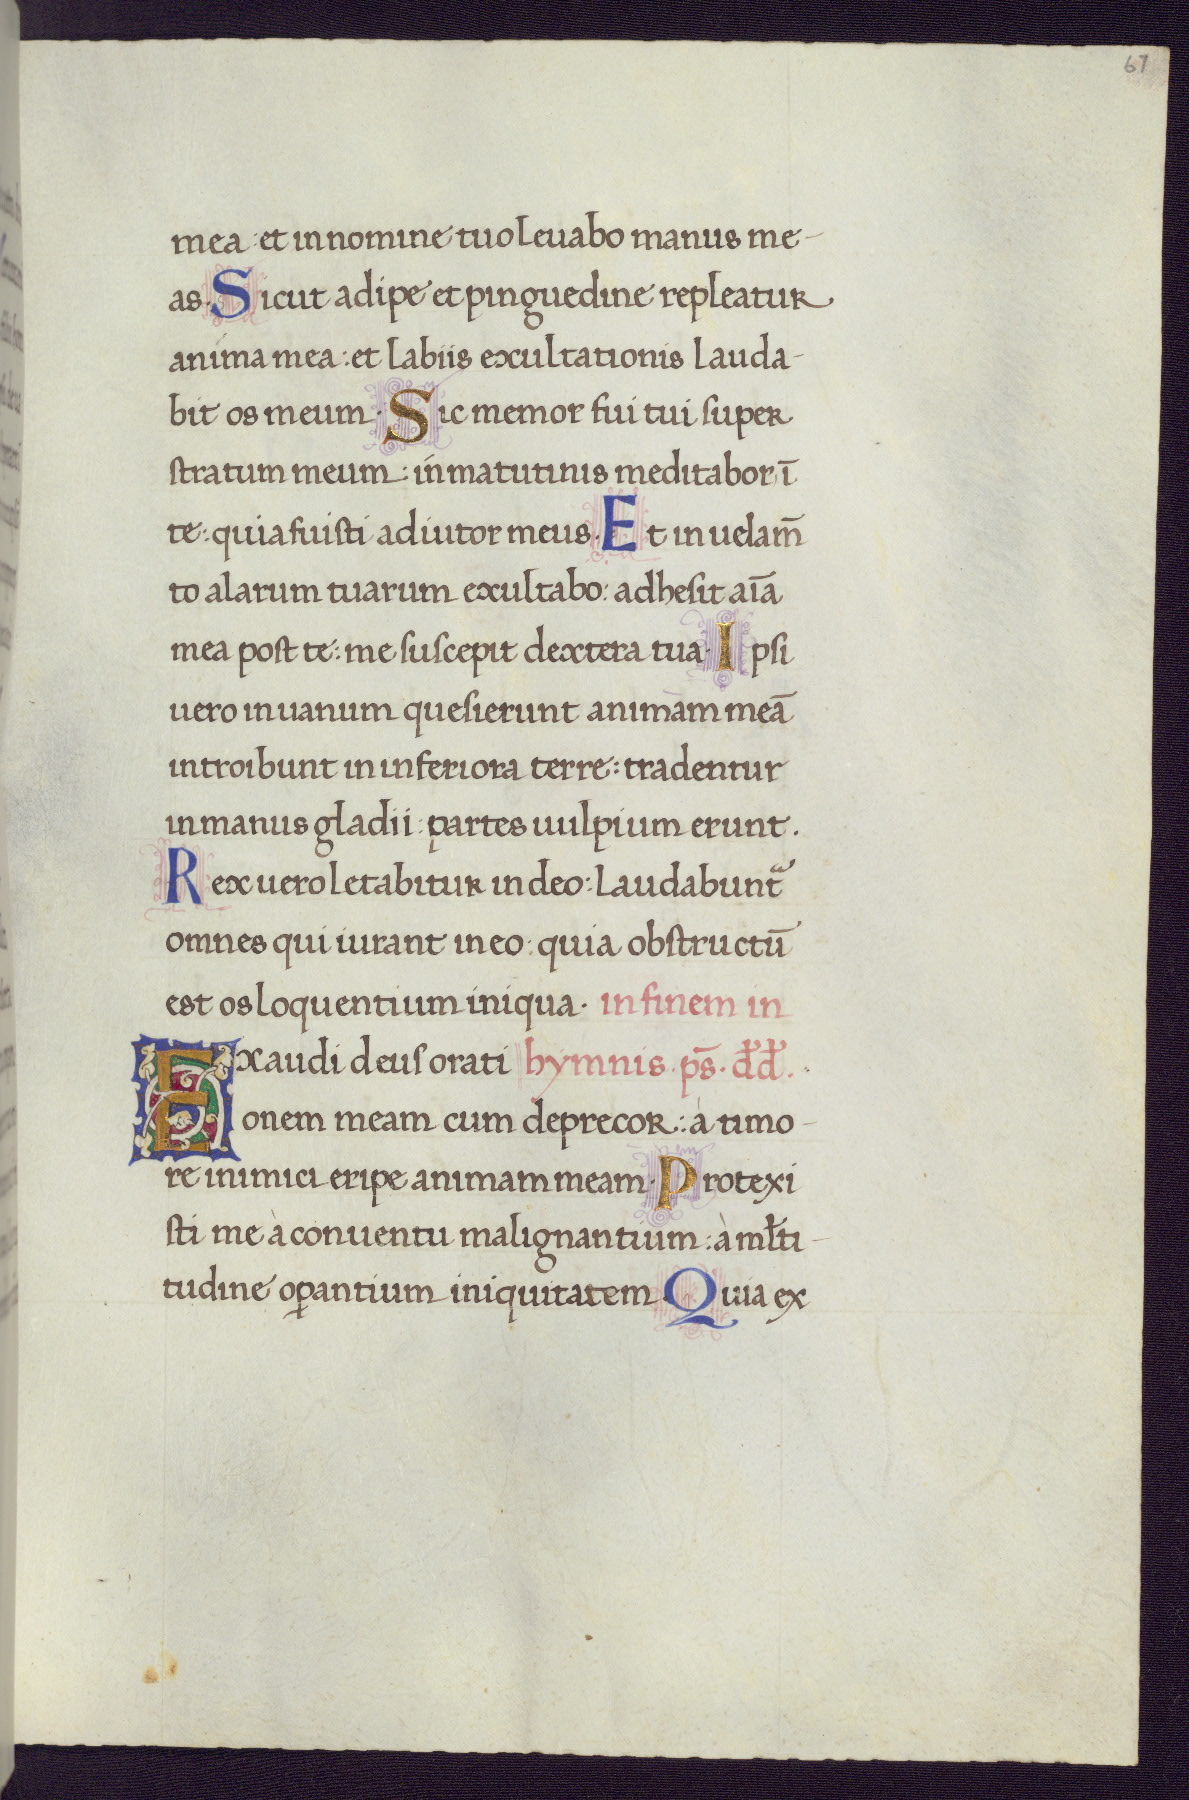 67
mea : et in nomine tuo leuabo manus me-
as. Sicut adipe et pinguedine repleatur
anima mea : et labiis exultationis lauda-
bit os meum. Sic memor fui tui super
stratum meum : in matutinis meditabor ī
te : quia fuisti adiutor meus. Et in uelam̄
to alarum tuarum exultabo : adhesit aīa
mea post te : me suscepit dextera tua. Ipsi
uero in uanum quesierunt animam meā
introibunt in inferiora terre : tradentur
in manus gladii : partes uulpium erunt.
Rex uero letabitur in deo : laudabunt᷑
omnes qui iurant in eo : quia obstructū
est os loquentium iniqua. in finem in
Exaudi deus orati hymnis. ps̄. dd̄.
onem meam cum deprecor : à timo-
re inimici eripe animam meam. Protexi
sti me à conuentu malignantium : à ml̄ti-
tudine oꝑantium iniquitatem. Quia ex